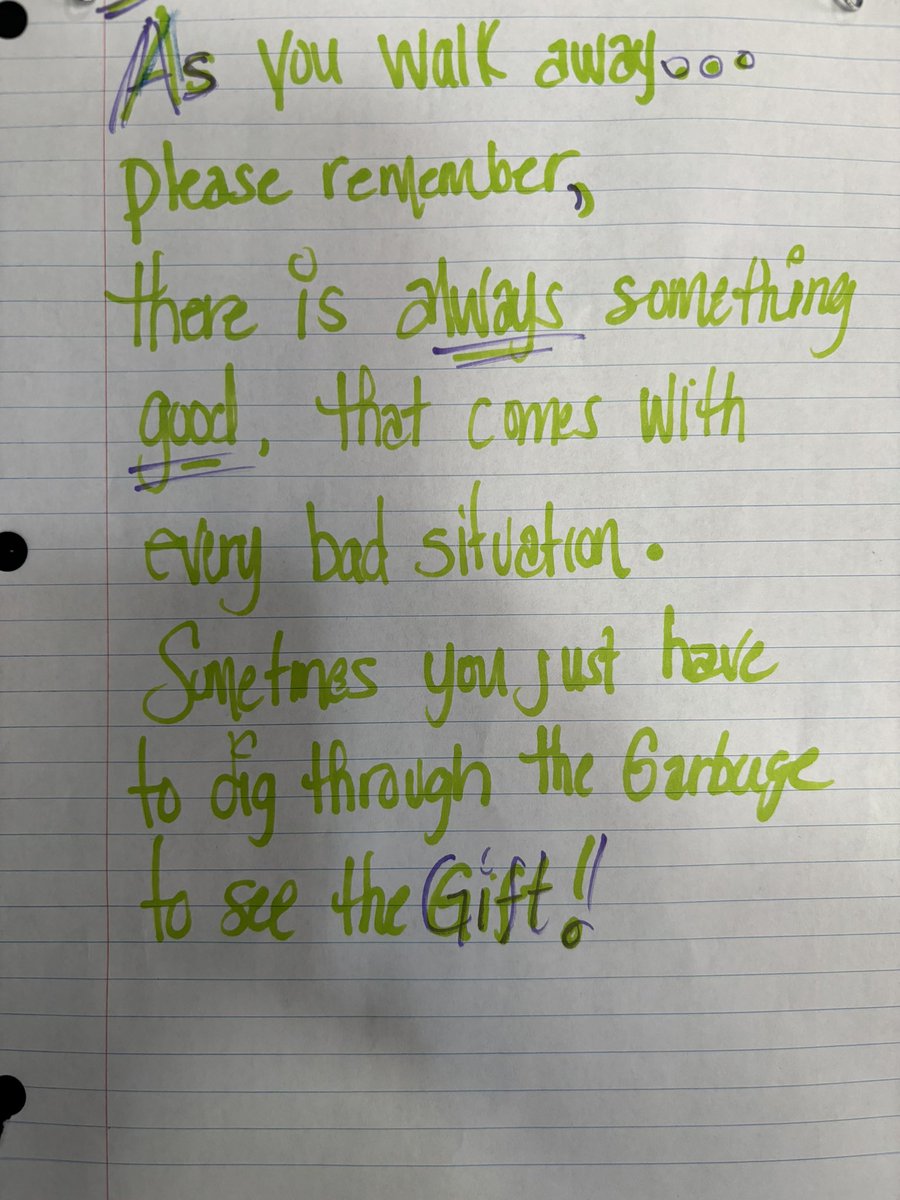 As you walk away...
please remember,
there is always something
good, that comes with
every bad situation.
Sometimes you just have
to dig through the Garbage
to see the Gift!